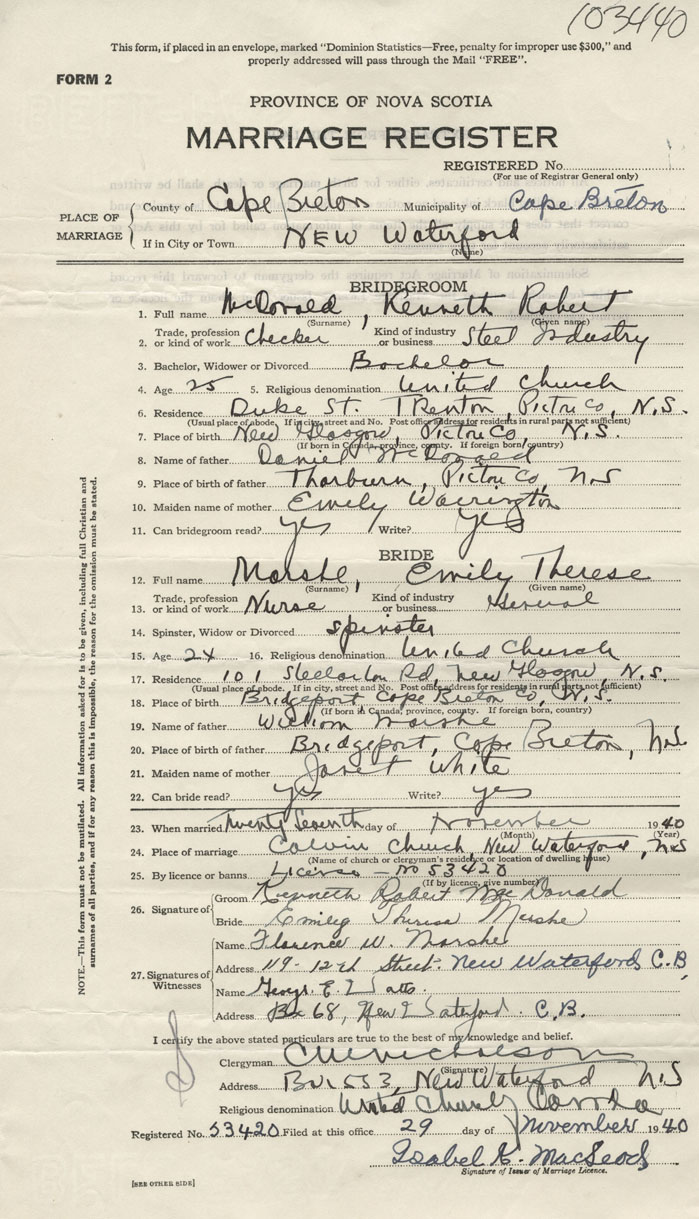 103440
This form, if placed in an envelope, marked "Dominion Statistics—Free, penalty for improper use $300," and
properly addressed will pass through the Mail "FREE".
FORM 2
PROVINCE OF NOVA SCOTIA
MARRIAGE REGISTER
REGISTERED No.
(For use of Registrar General only)
PLACE OF MARRIAGE
County of Cape Breton Municipality of Cape Breton
If in City or Town NEW Waterford
(Name)
BRIDEGROOM
1. Full name McDonald, Kenneth Robert
(Surname) (Given name)
2. Trade, profession or kind of work Checker Kind of industry or business Steel Industry
3. Bachelor, Widower or Divorced Bachelor
4. Age 25 5. Religious denomination United Church
6. Residence Duke St. Trenton, Pictou Co, N.S.
(Usual place of abode. If in city, street and No. Post office address for residents in rural parts not sufficient)
7. Place of birth New Glasgow, Pictou Co, N.S.
(If born in Canada, province, county. If foreign born, country)
8. Name of father Daniel McDonald
9. Place of birth of father Thorburn, Pictou Co, N.S
10. Maiden name of mother Emily Warrington
11. Can bridegroom read? yes Write? yes
BRIDE
12. Full name Marshe, Emily Therese
(Surname) (Given name)
13. Trade, profession or kind of work Nurse Kind of industry or business General
14. Spinster, Widow or Divorced spinster
15. Age 24 16. Religious denomination United Church
17. Residence 101 Stellarton Rd, New Glasgow, N.S.
(Usual place of abode. If in city, street and No. Post office address for residents in rural parts not sufficient)
18. Place of birth Bridgeport Cape Breton Co, N.S.
(If born in Canada, province, county. If foreign born, country)
19. Name of father William Marshe
20. Place of birth of father Bridgeport, Cape Breton, N.S.
21. Maiden name of mother Janet White
22. Can bride read? yes Write? yes
23. When married Twenty Seventh day of November 1940
(Month) (Year)
24. Place of marriage Calvin Church, New Waterford, N.S
(Name of church or clergyman's residence or location of dwelling house)
25. By licence or banns License - No 53420
(If by licence, give number)
26. Signature of
Groom Kenneth Robert MacDonald
Bride Emily Therese Marshe
27. Signatures of Witnesses
Name Florence W. Marshe
Address 119-12th Street. New Waterford C.B
Name George E. Watts.
Address Bx 68, New Waterford. C.B.
I certify the above stated particulars are true to the best of my knowledge and belief.
Clergyman C M Nicholson
(Signature)
Address Box 553, New Waterford N.S
Religious denomination United Church Canada
Registered No. 53420 Filed at this office 29 day of November 1940
Isabel K. MacLeod
Signature of Issuer of Marriage Licence.
[SEE OTHER SIDE]
NOTE.—This form must not be mutilated. All information asked for is to be given, including full Christian and
surnames of all parties, and if for any reason this is impossible, the reason for the omission must be stated.